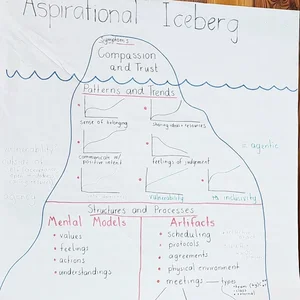 Aspirational Iceberg
Symptoms
Compassion
and Trust
Patterns and Trends
sense of belonging
sharing ideas + resources
communicate w/
positive intent
feelings of judgment
= agentic
vulnerability
inclusivity
Structures and Processes
Mental Models
• values
• feelings
• actions
• understandings
Artifacts
• scheduling
• protocols
• agreements
• physical environment
• meetings